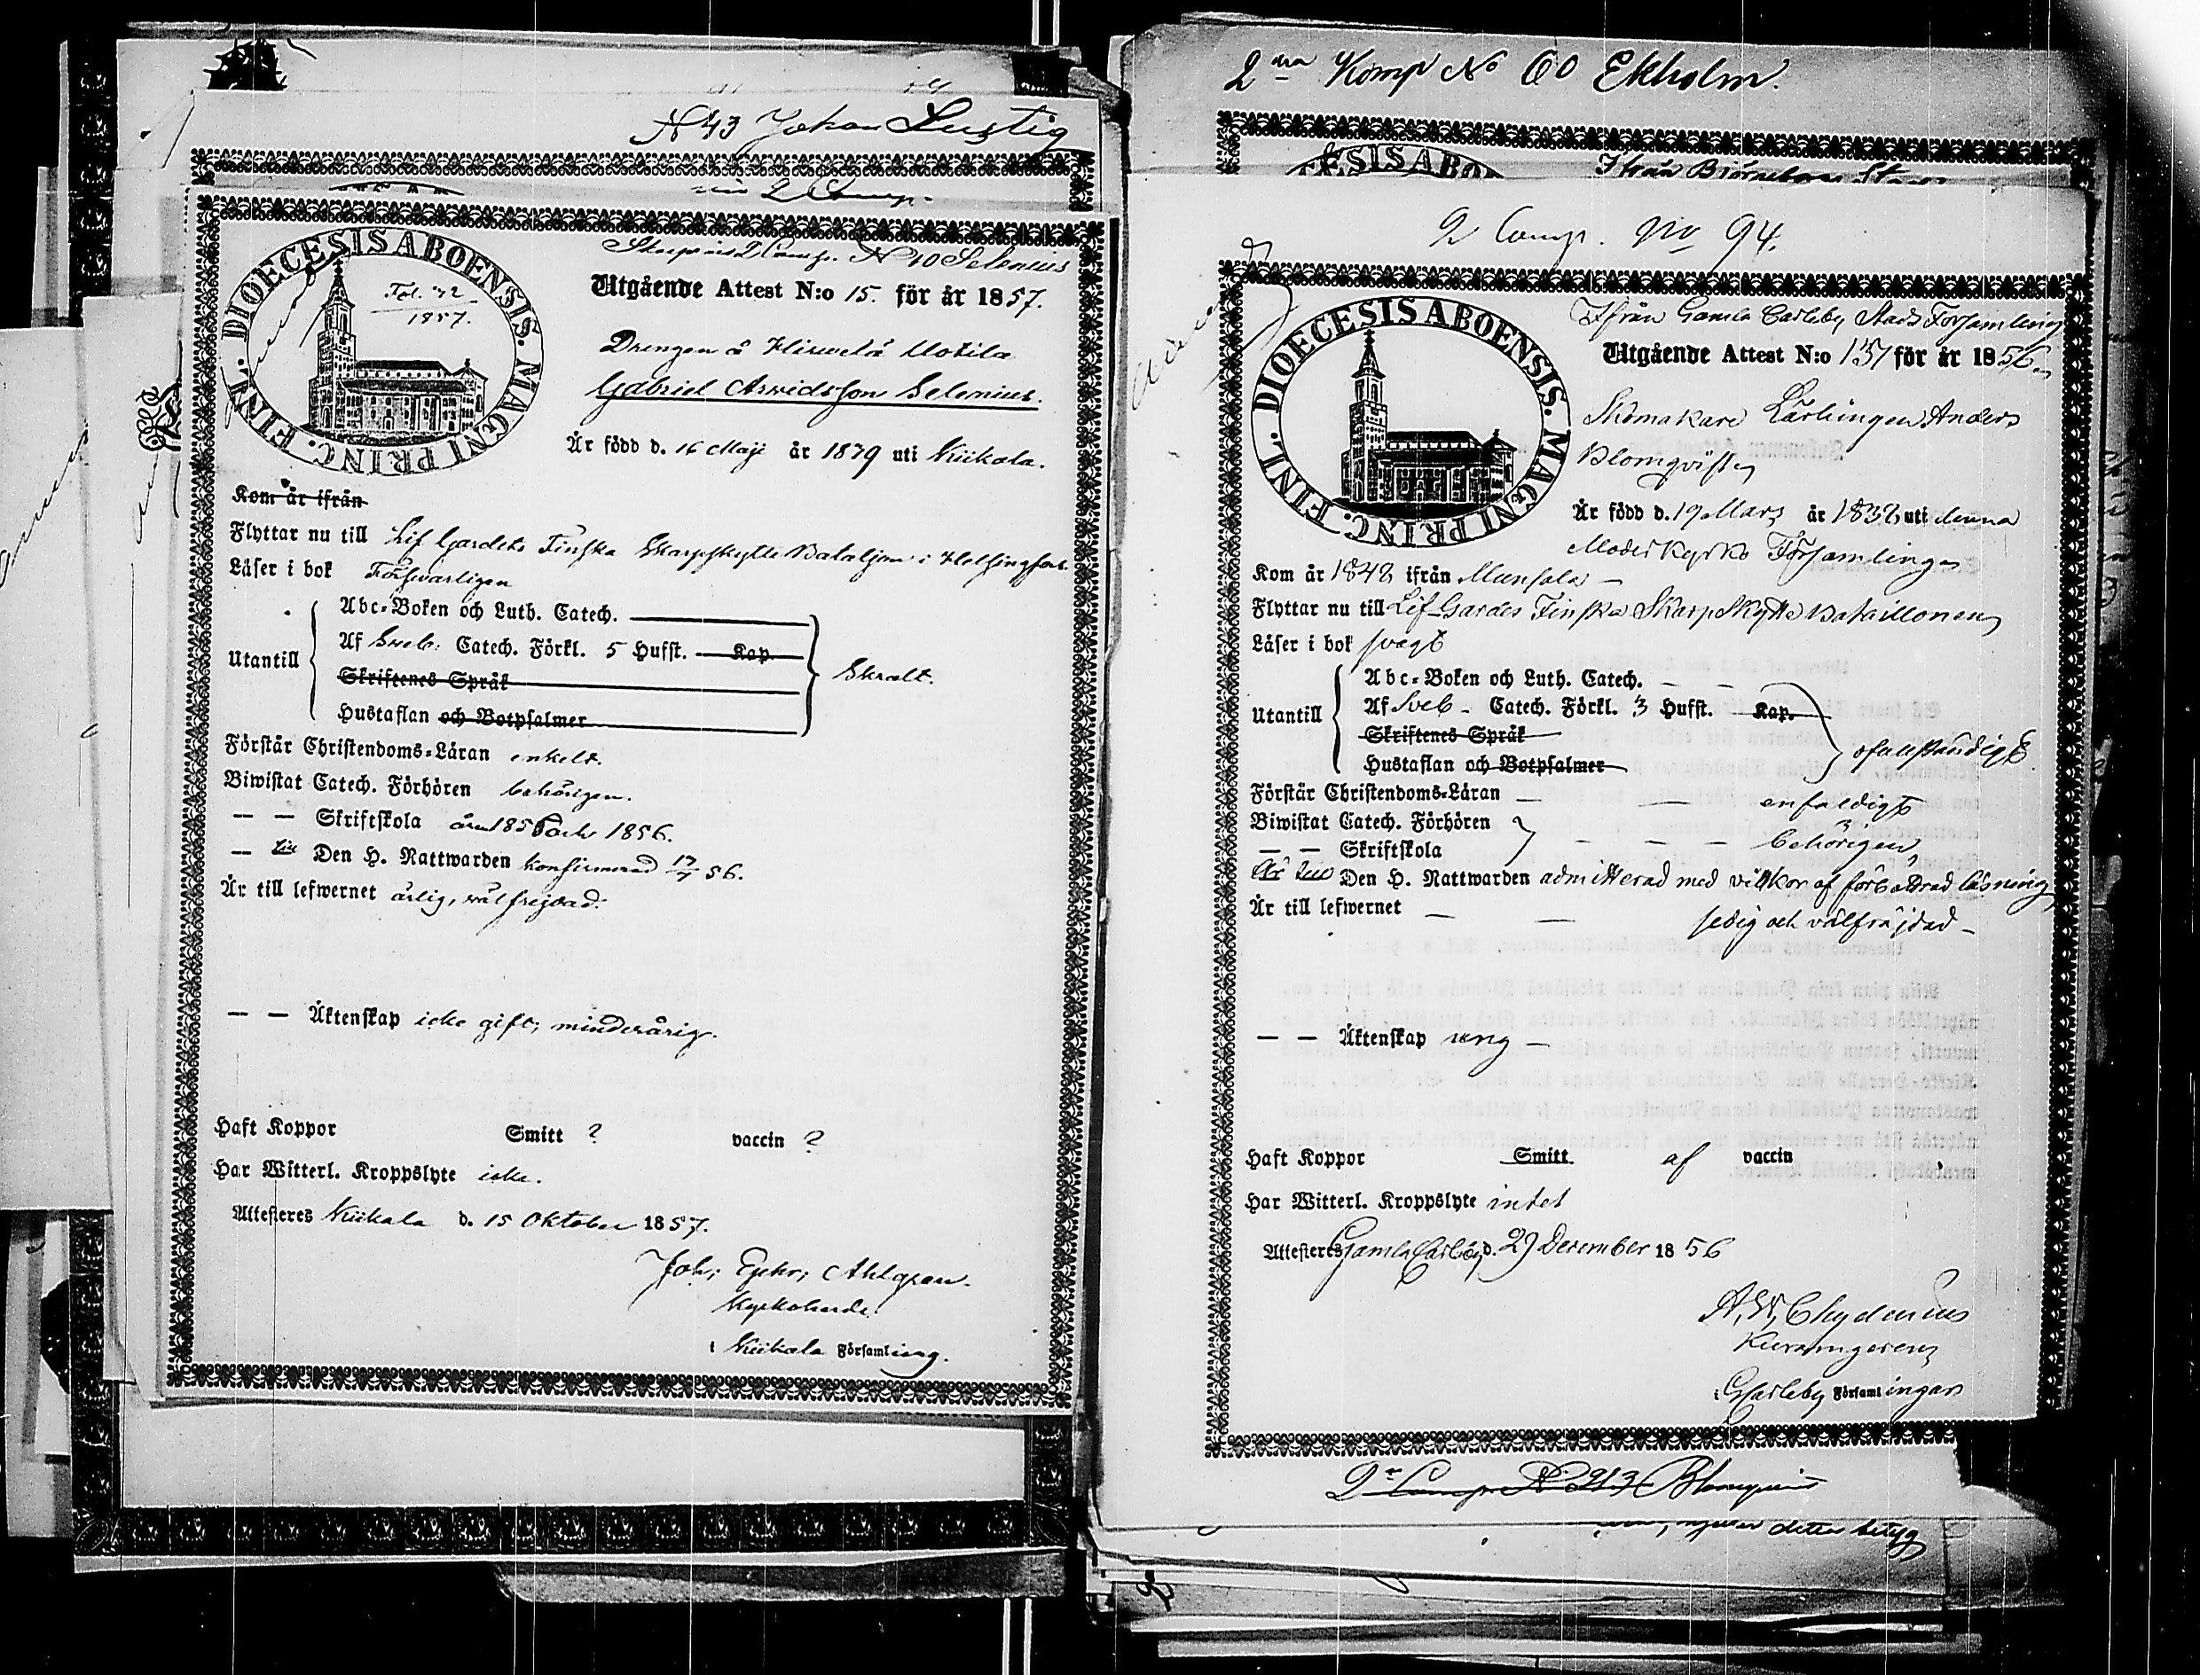 N 43 Johan Lustig
2 Comp.
DIOECESIS ABOENSIS. MAGNI PRINC. FINL.
Fol. 42
1857.
Skarpsk. 2 Comp. N 40 Selenius
Utgående Attest N:o 15. för år 1857.
Drengen å Hirwelä Uotila
Gabriel Arwidsson Selenius.
Är född d. 16 Maji år 1839 uti Kiikala.
Kom år ifrån
Flyttar nu till Lif Gardets Finska Skarpskytte Bataljon i Helsingfors.
Läser i bok Förswarligen
Utantill
Abc-Boken och Luth. Catech.
Af Sweb. Catech. Förkl. 5 Hufst. Kap.
Skriftenes Språk
Hustaflan och Botpsalmer
Skralt.
Förstår Christendoms-Läran enkelt.
Biwistat Catech. Förhören behörigen.
— — Skriftskola åren 1855 och 1856.
— till Den H. Nattwarden konfirmerad 17/7 56.
Är till lefwernet ärlig, wälfrejdad.
— — Äktenskap icke gift, minderårig.
Haft Koppor Smitt ? vaccin ?
Har Witterl. Kroppslyte icke.
Attesteras Kiikala d. 15 Oktober 1857.
Joh; Ephr; Ahlgren.
Kyrkoherde.
i Kiikala Församling.
2dra Komp No 60 Ekholm.
Ifrån Björneborgs Stads
2 Comp. No 94.
DIOECESIS ABOENSIS. MAGNI PRINC. FINL.
Ifrån Gamla Carleby Stads Församling
Utgående Attest N:o 151 för år 1856.
Skomakare Lärlingen Anders
Blomqvist
Är född d. 19 Mars år 1838 uti denna
Moderkyrko Församling
Kom år 1848 ifrån Munsala —
Flyttar nu till Lif-Gardes Finska Skarp Skytte Bataillonen
Läser i bok svagt
Utantill
Abc-Boken och Luth. Catech. — —
Af Sveb — Catech. Förkl. 3 Hufst. Kap.
Skriftenes Språk
Hustaflan och Botpsalmer
ofullständigt
Förstår Christendoms-Läran — — enfaldigt
Biwistat Catech. Förhören
— — Skriftskola — — — behörigen
Är till Den H. Nattwarden admitterad med vilkor af förbättrad läsning
Är till lefwernet — — sedig och välfräjdad —
— — Äktenskap ung —
Haft Koppor Smitt af vaccin
Har Witterl. Kroppslyte intet
Attesteres Gamla Carleby d. 29 December 1856
A. W. Chydenius
i GCarleby Församlingar
2 Comp N 213 Blomqvist
detta betyg